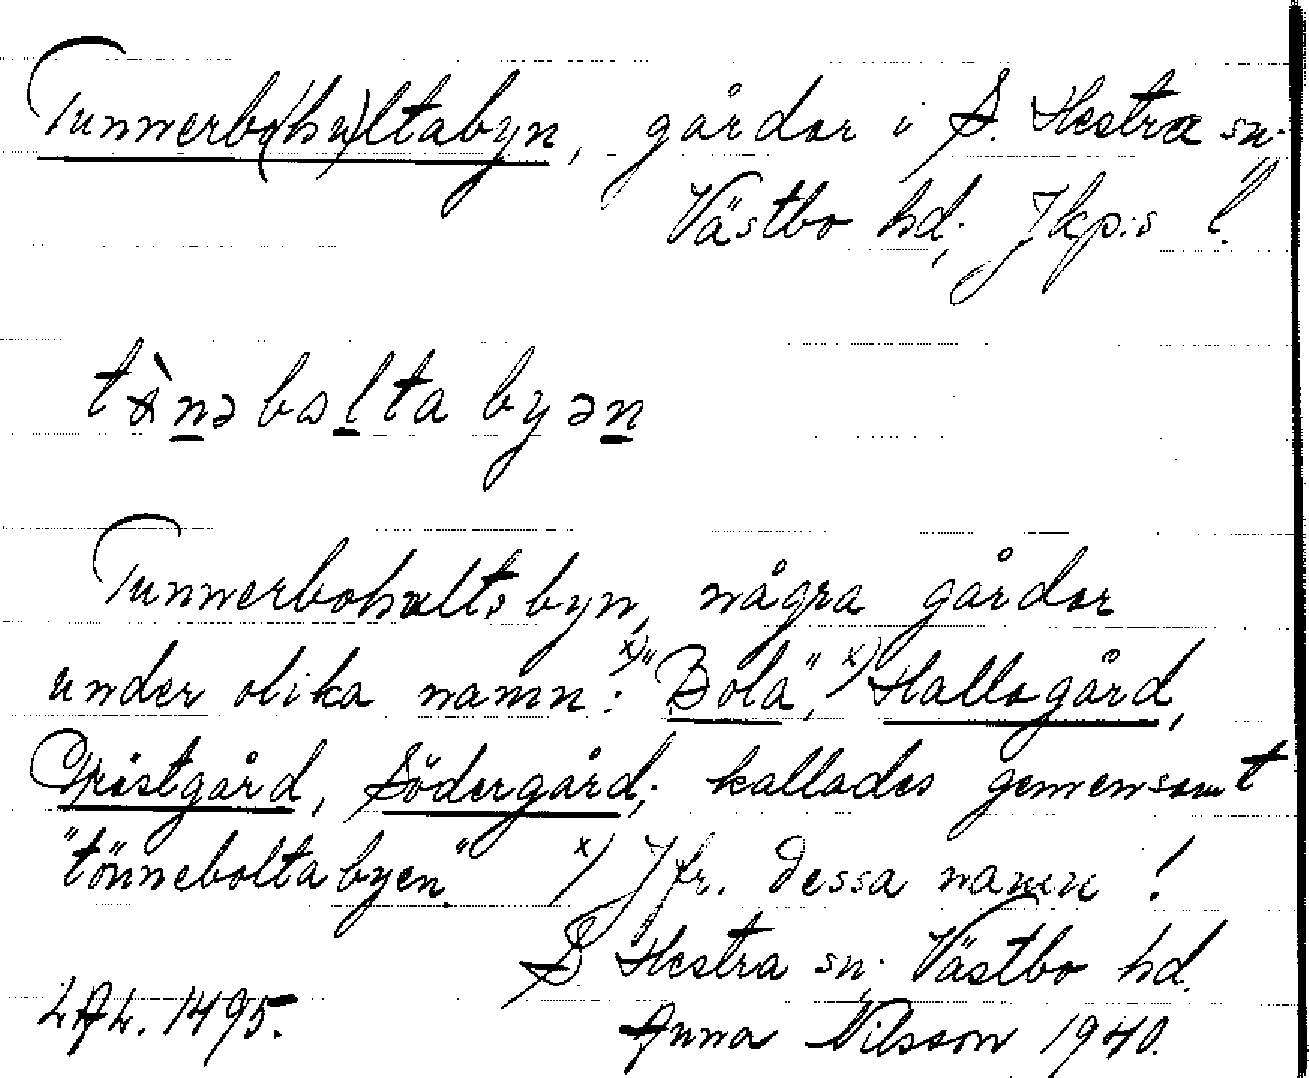 Tunnerbo(hu)ltabyn, gårdar i S. Hestra sn.
Västbo hd, Jkp:s l.
tònəboltabyən
Tunnerbohultsbyn, några gårdar
under olika namn: x)"Bola", x) Hallagård,
Prästgård, Södergård; kallades gemensamt
"tönneboltabyen." x) Jfr. dessa namn!
S Hestra sn. Västbo hd.
LAL. 1495. Anna Nilsson 1940.